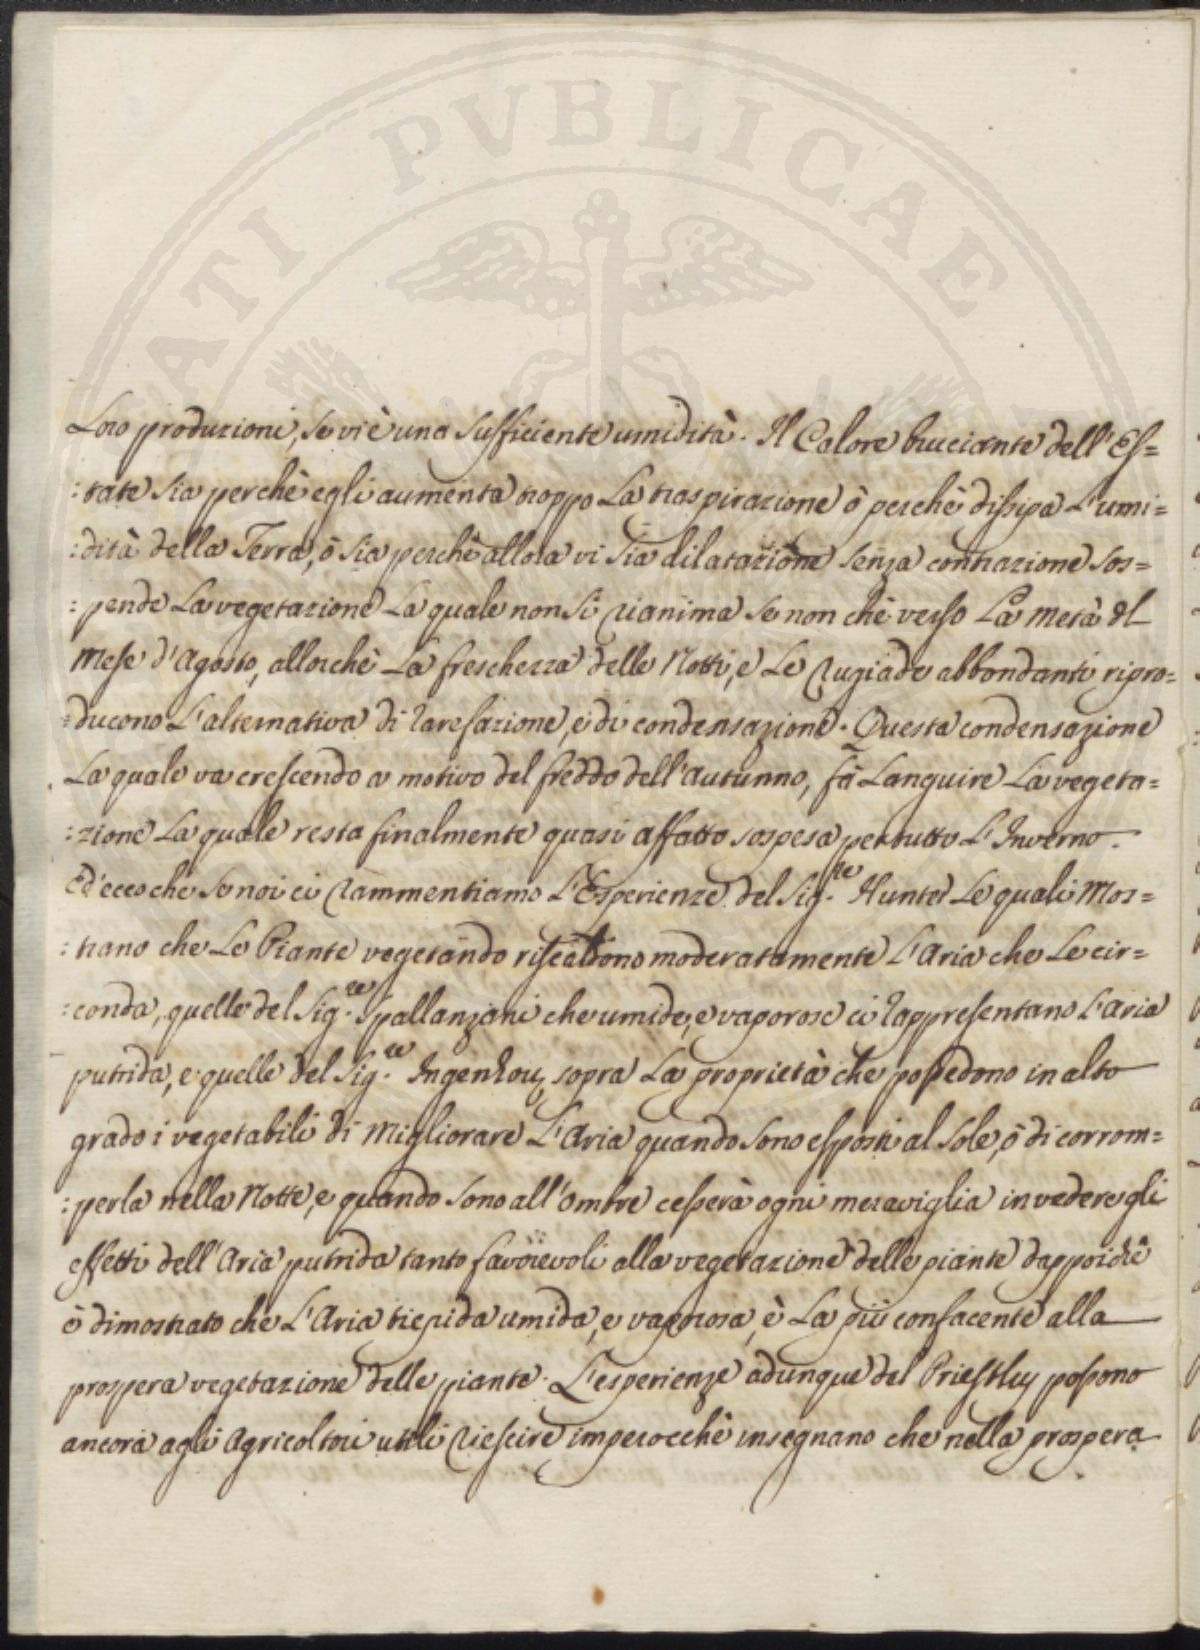 PVBLICAE
Loro produzioni, se vi è una sufficiente umidità. Il Calore bruciante dell'Es=
:tate sia perchè egli aumenta troppo La traspirazione ò perchè dissipa L'umi=
:dità della Terra, ò sia perchè allora vi sia dilatazione senza contrazione sos=
:pende La vegetazione La quale non si rianima se non chè verso La metà del
Mese d'Agosto, allorchè La freschezza delle Notti, e Le rugiade abbondanti ripro=
=ducono L'alternativa di rarefazione, e di condensazione. Questa condensazione
La quale va crescendo a motivo del freddo dell'Autunno, fà Languire La vegeta=
:zione La quale resta finalmente quasi affatto sospesa per tutto L'Inverno.
Ed'ecco che se noi ci rammentiamo L'Esperienze del Sig.re Hunter Le quali Mos=
:trano che Le Piante vegetando riscaldono moderatamente L'Aria che Le cir=
:conda, quelle del Sig.re Spallanzani che umide, e vaporose ci rappresentano L'Aria
putrida, e quelle del Sig.re Ingenhouz sopra La proprietà che possedono in alto
grado i vegetabili di Migliorare L'Aria quando sono esposti al Sole, ò di corrom=
:perla nella Notte, e quando sono all'ombre cesserà ogni meraviglia in vedere gli
effetti dell'Aria putrida tanto favorevoli alla vegetazione delle piante dappoichè
è dimostrato che L'Aria tiepida umida, e vaporosa, è La più confacente alla
prospera vegetazione delle piante. L'esperienze adunque del Priestley possono
ancora agli Agricoltori utili riescire imperocchè insegnano che nella prospera